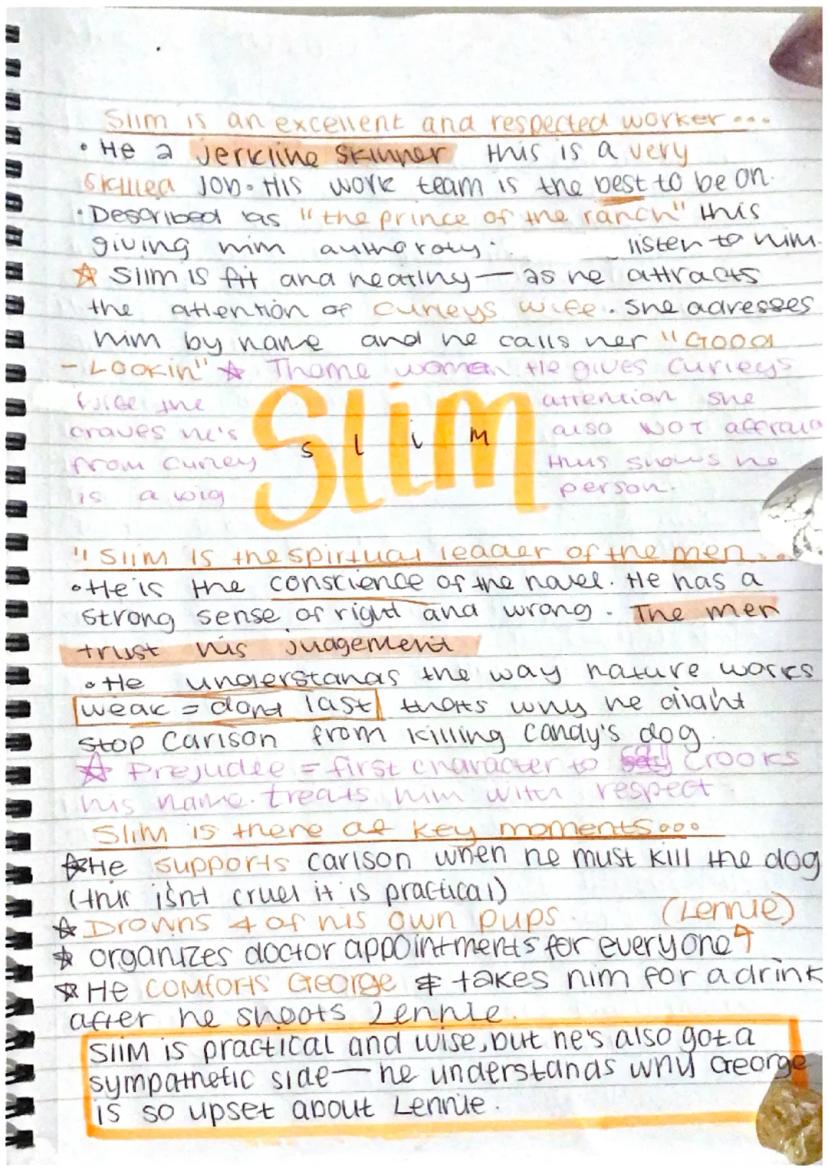 Slim is an excellent and respected worker...
• He a Jerkline Skinner this is a very
skilled Job. His work team is the best to be on.
• Described as "the prince of the ranch" this
giving him authoraty. listen to him.
☆ Slim is fit and healthy — as he attracts
the attention of Curleys wife. She adresses
him by name and he calls her "Good
- Lookin" ☆ Thome women He gives Curleys
wife the attention she
craves he's also NOT affraid
from Curley thus shows he
is a wig person.
Slim
s l i m
"Slim is the spirtual leader of the men...
• He is the conscience of the novel. He has a
strong sense of right and wrong. The men
trust his judgement
• He understands the way nature works
weak = dont last thats why he didnt
stop Carlson from killing Candy's dog.
☆ Prejudie = first character to Crooks
his name. treats him with respect
Slim is there at key moments...
☆ He supports carlson when he must kill the dog
(this isn't cruel it is practical)
☆ Drowns 4 of his own pups. (Lennie)
☆ organizes doctor appointments for everyone
☆ He comforts George & takes him for a drink
after he shoots Lennie.
Slim is practical and wise, but he's also got a
sympathetic side — he understands why George
is so upset about Lennie.